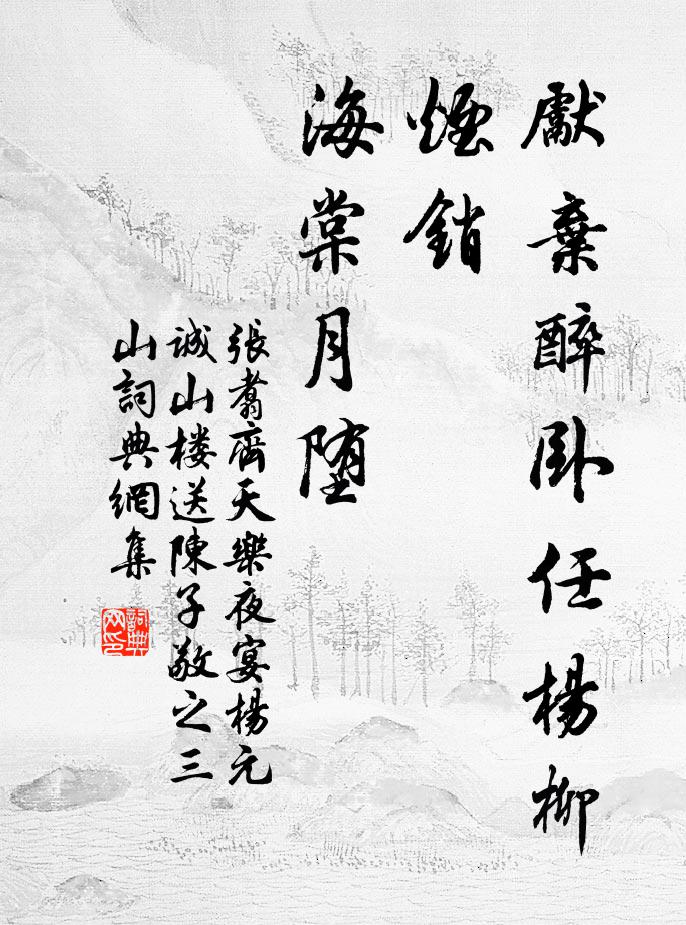 厭棄醉臥任楊柳
煙銷
海棠月墮
張翥齊天樂夜宴楊元
誠山楼送陳子敬之三
山詞典網集
詞典网印